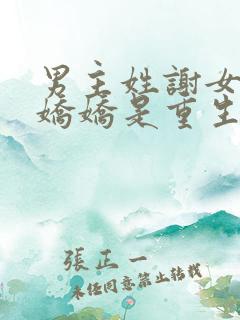 男主姓謝女
嬌嬌是重生
張正一
未經同意禁止轉載